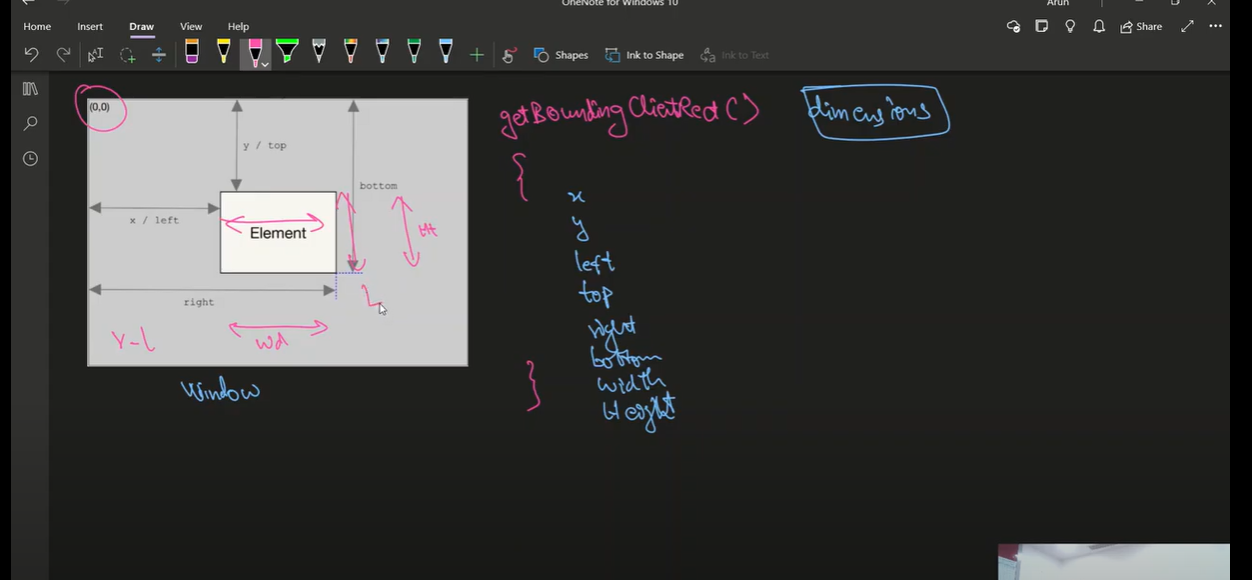 OneNote for Windows 10
Arun
Home Insert Draw View Help
Share
Shapes Ink to Shape Ink to Text
(0,0)
y / top
bottom
x / left
Element
Ht
right
r-l
Wd
Window
getBoundingClientRect()
dimensions
{
x
y
left
top
right
bottom
width
Height
}